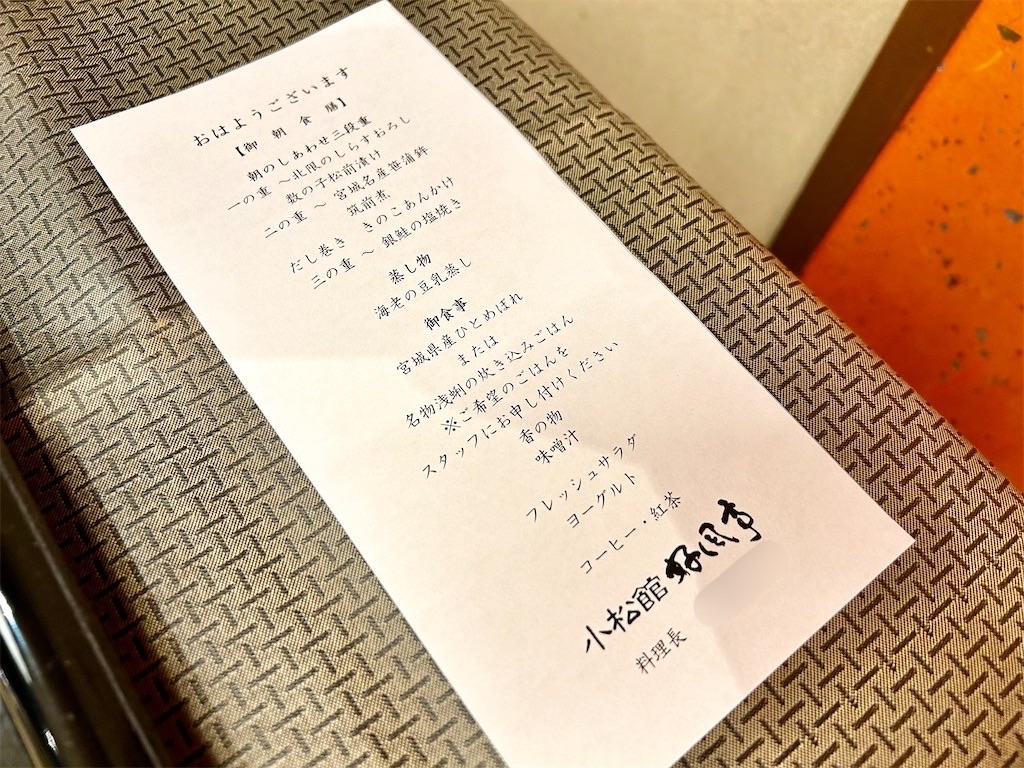 おはようございます
【御　朝　食　膳】
朝のしあわせ三段重
一の重　～北限のしらすおろし
数の子松前漬け
二の重　～　宮城名産笹蒲鉾
筑前煮
だし巻き　きのこあんかけ
三の重　～　銀鮭の塩焼き
蒸し物
海老の豆乳蒸し
御食事
宮城県産ひとめぼれ
または
名物浅蜊の炊き込みごはん
※ご希望のごはんを
スタッフにお申し付けください
香の物
味噌汁
フレッシュサラダ
ヨーグルト
コーヒー・紅茶
小松館 好風亭
料理長